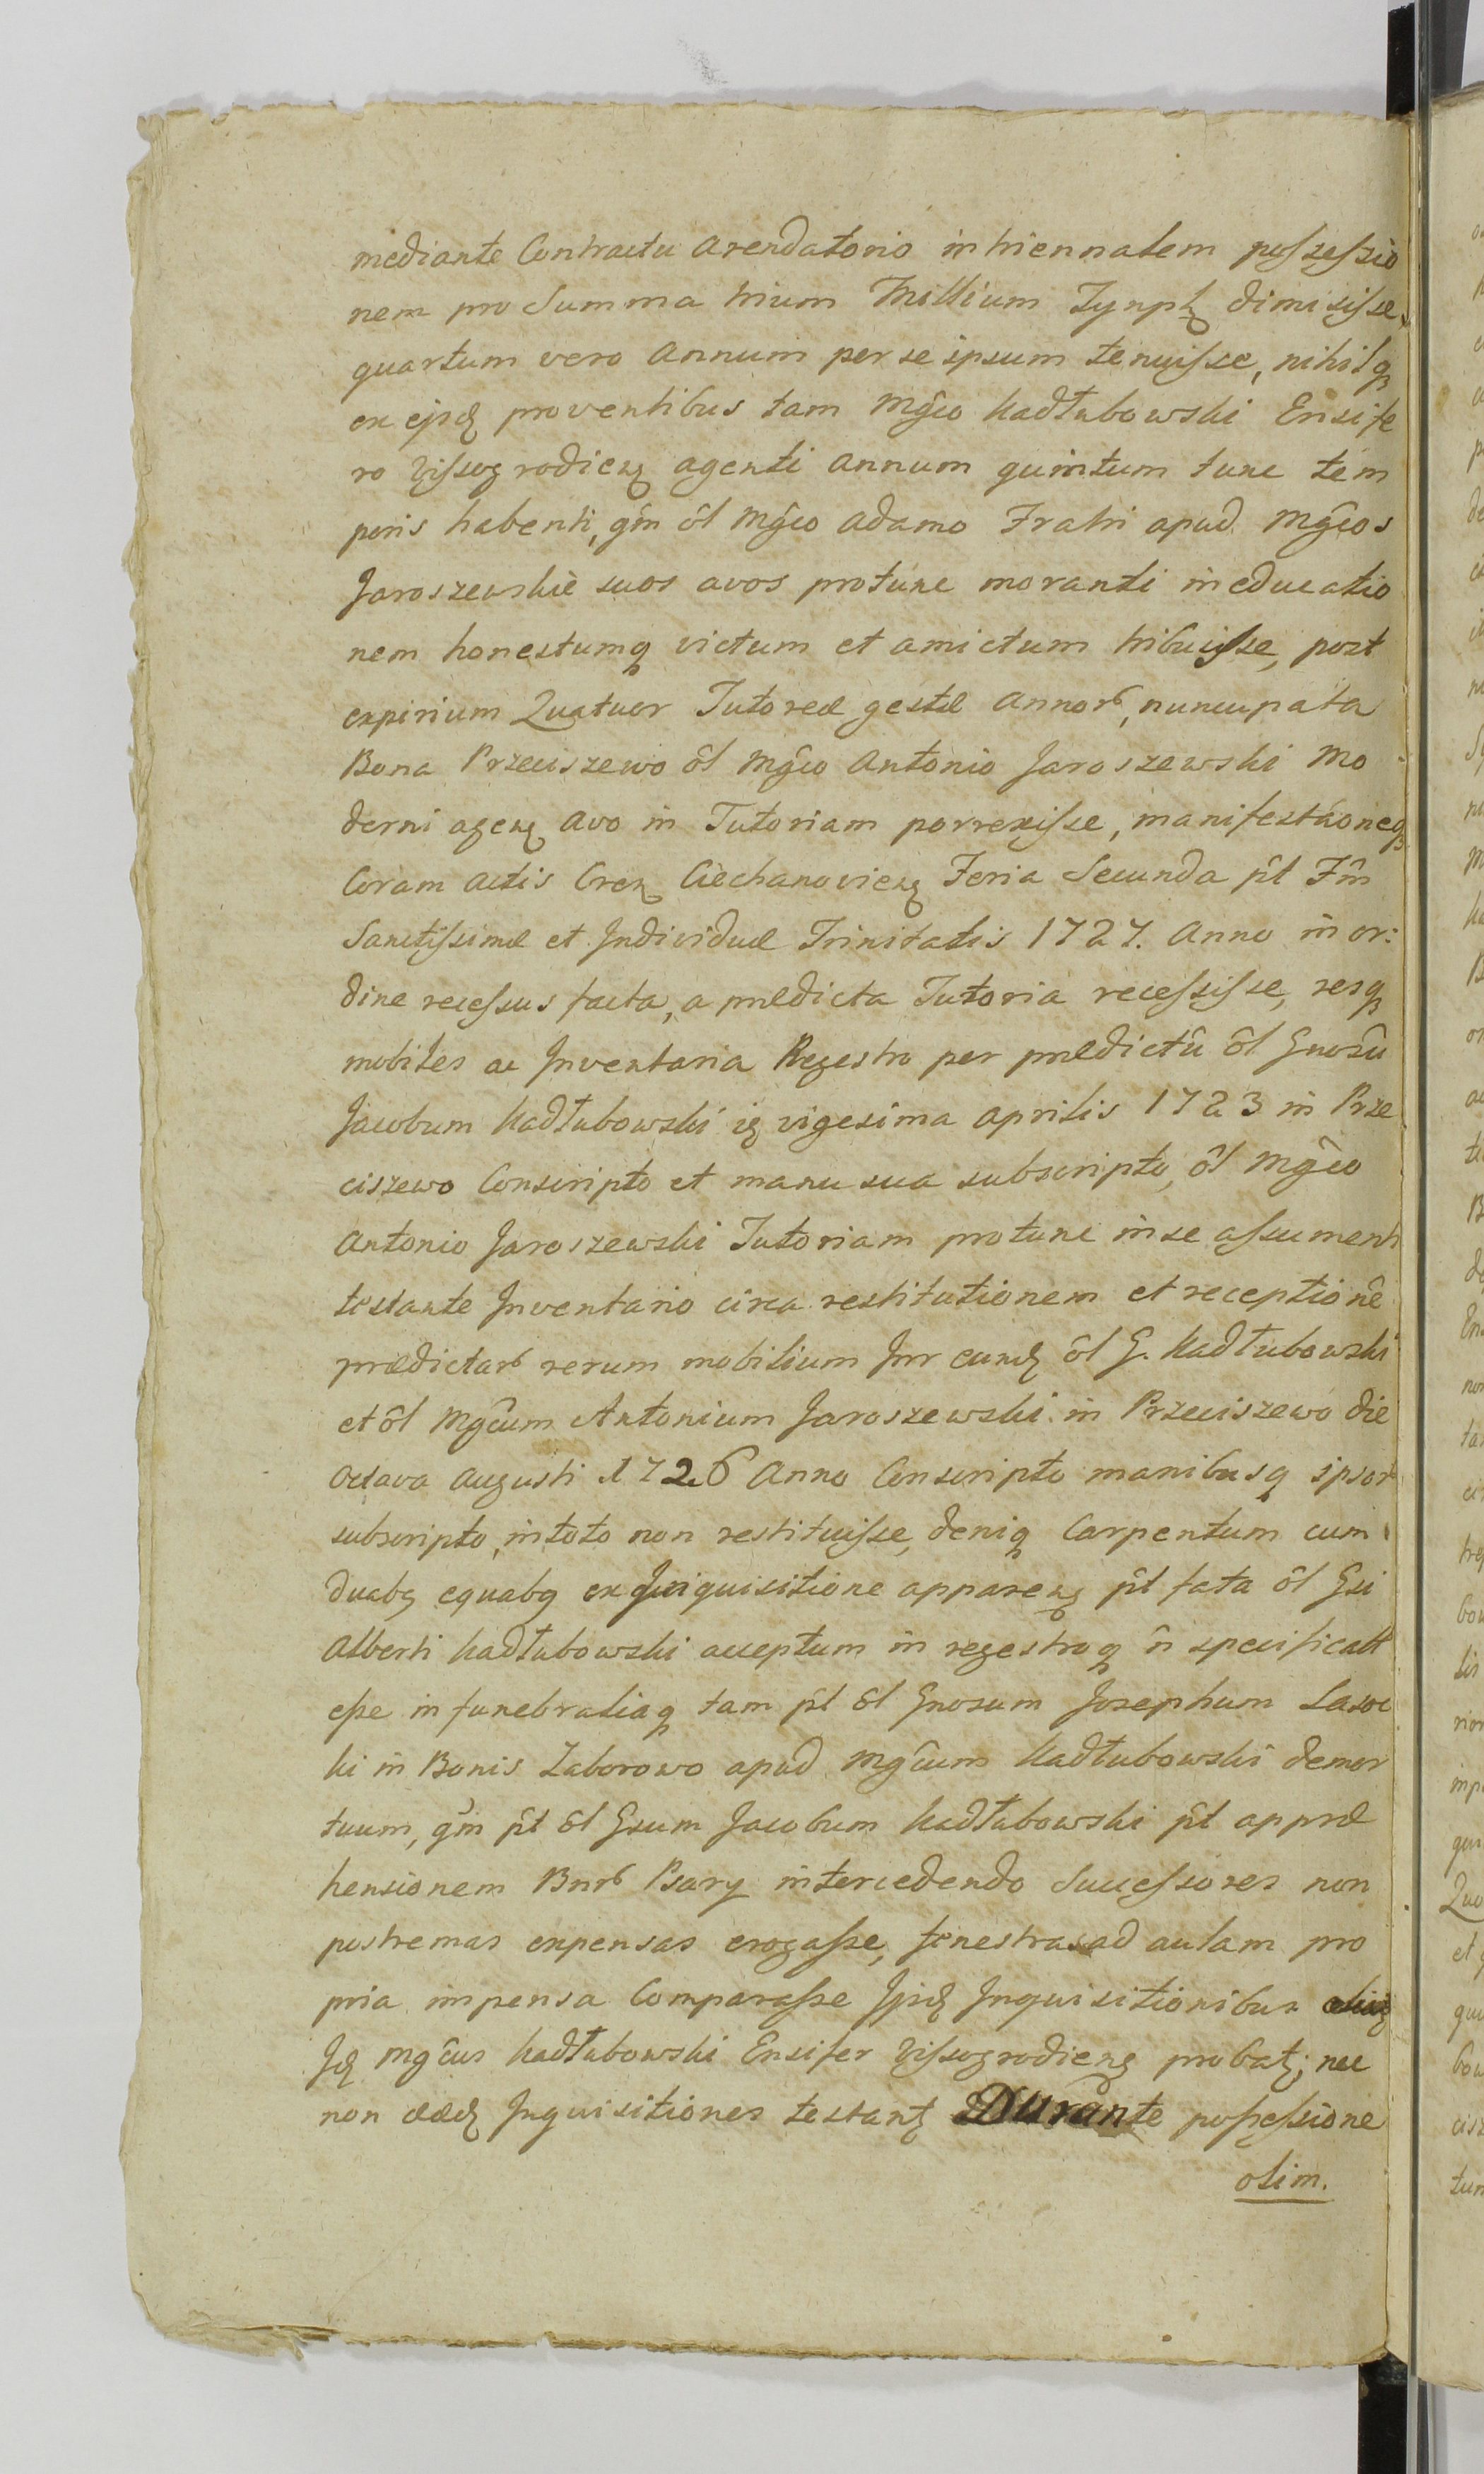 mediante Contractu Arendatorio in triennalem possessio
nem pro Summa trium Millium Tynph dimisisse,
quartum vero Annum per se ipsum tenuisse, nihilq
ex ejsd proventibus tam Mgco Kadłubowski Ensife
ro Vissogrodien agenti annum quintum tunc tem
poris habenti, qm ol Mgco Adamo Fratri apud Mgcos
Jaroszewskie suos avos protunc moranti in educatio
nem honestumq victum et amictum tribuisse, post
expirium Quatuor Tutoreæ gestæ Annor, nuncupata
Bona Przeciszewo ol Mgco Antonio Jaroszewski Mo
derni agen Avo in Tutoriam porrexisse, manifestaoneq
Coram Actis Cren Ciechanovien Feria Secunda pt Fm
Sanctissimæ et Individuæ Trinitatis 1727. Anno in or:
dine recessus facta, a prædicta Tutoria recessisse, resq
mobiles ac Inventaria Regestro per prædictu ol Gnosu
Jacobum Kadłubowski vigesima Aprilis 1723 in Prze
ciszewo Conscripto et manu sua subscripto, ol Mgco
Antonio Jaroszewski Tutoriam protunc in se assumenti
testante Inventario circa restitutionem et receptione
prædictar rerum mobilium Intr eund ol G. Kadłubowski
et ol Mgcum Antonium Jaroszewski in Przeciszewo die
octava Augusti 1726 Anno Conscripto manibusq ipsor
subscripto, in toto non restituisse, deniq Carpentum cum
duabq equabq ex Inquisitione apparen pt fata ol Gsi
Alberti Kadłubowski acceptum in regestroq n specificatt
esse in funebraliaq tam pt ol Gnosum Josephum Lasoc
ki in Bonis Zaborowo apud Mgcum Kadłubowski demor
tuum, qm pt ol Gsum Jacobum Kadłubowski pt appræ
hensionem Bnr Psary intercedendo Successores non
postremas expensas erogasse, fenestras ad aulam pro
pria impensa Comparasse Ijsd Inquisitionibus
Id Mgcus Kadłubowski Ensifer Vissogrodien probat; nec
non eæd Inquisitiones testant Durante possessione
olim.